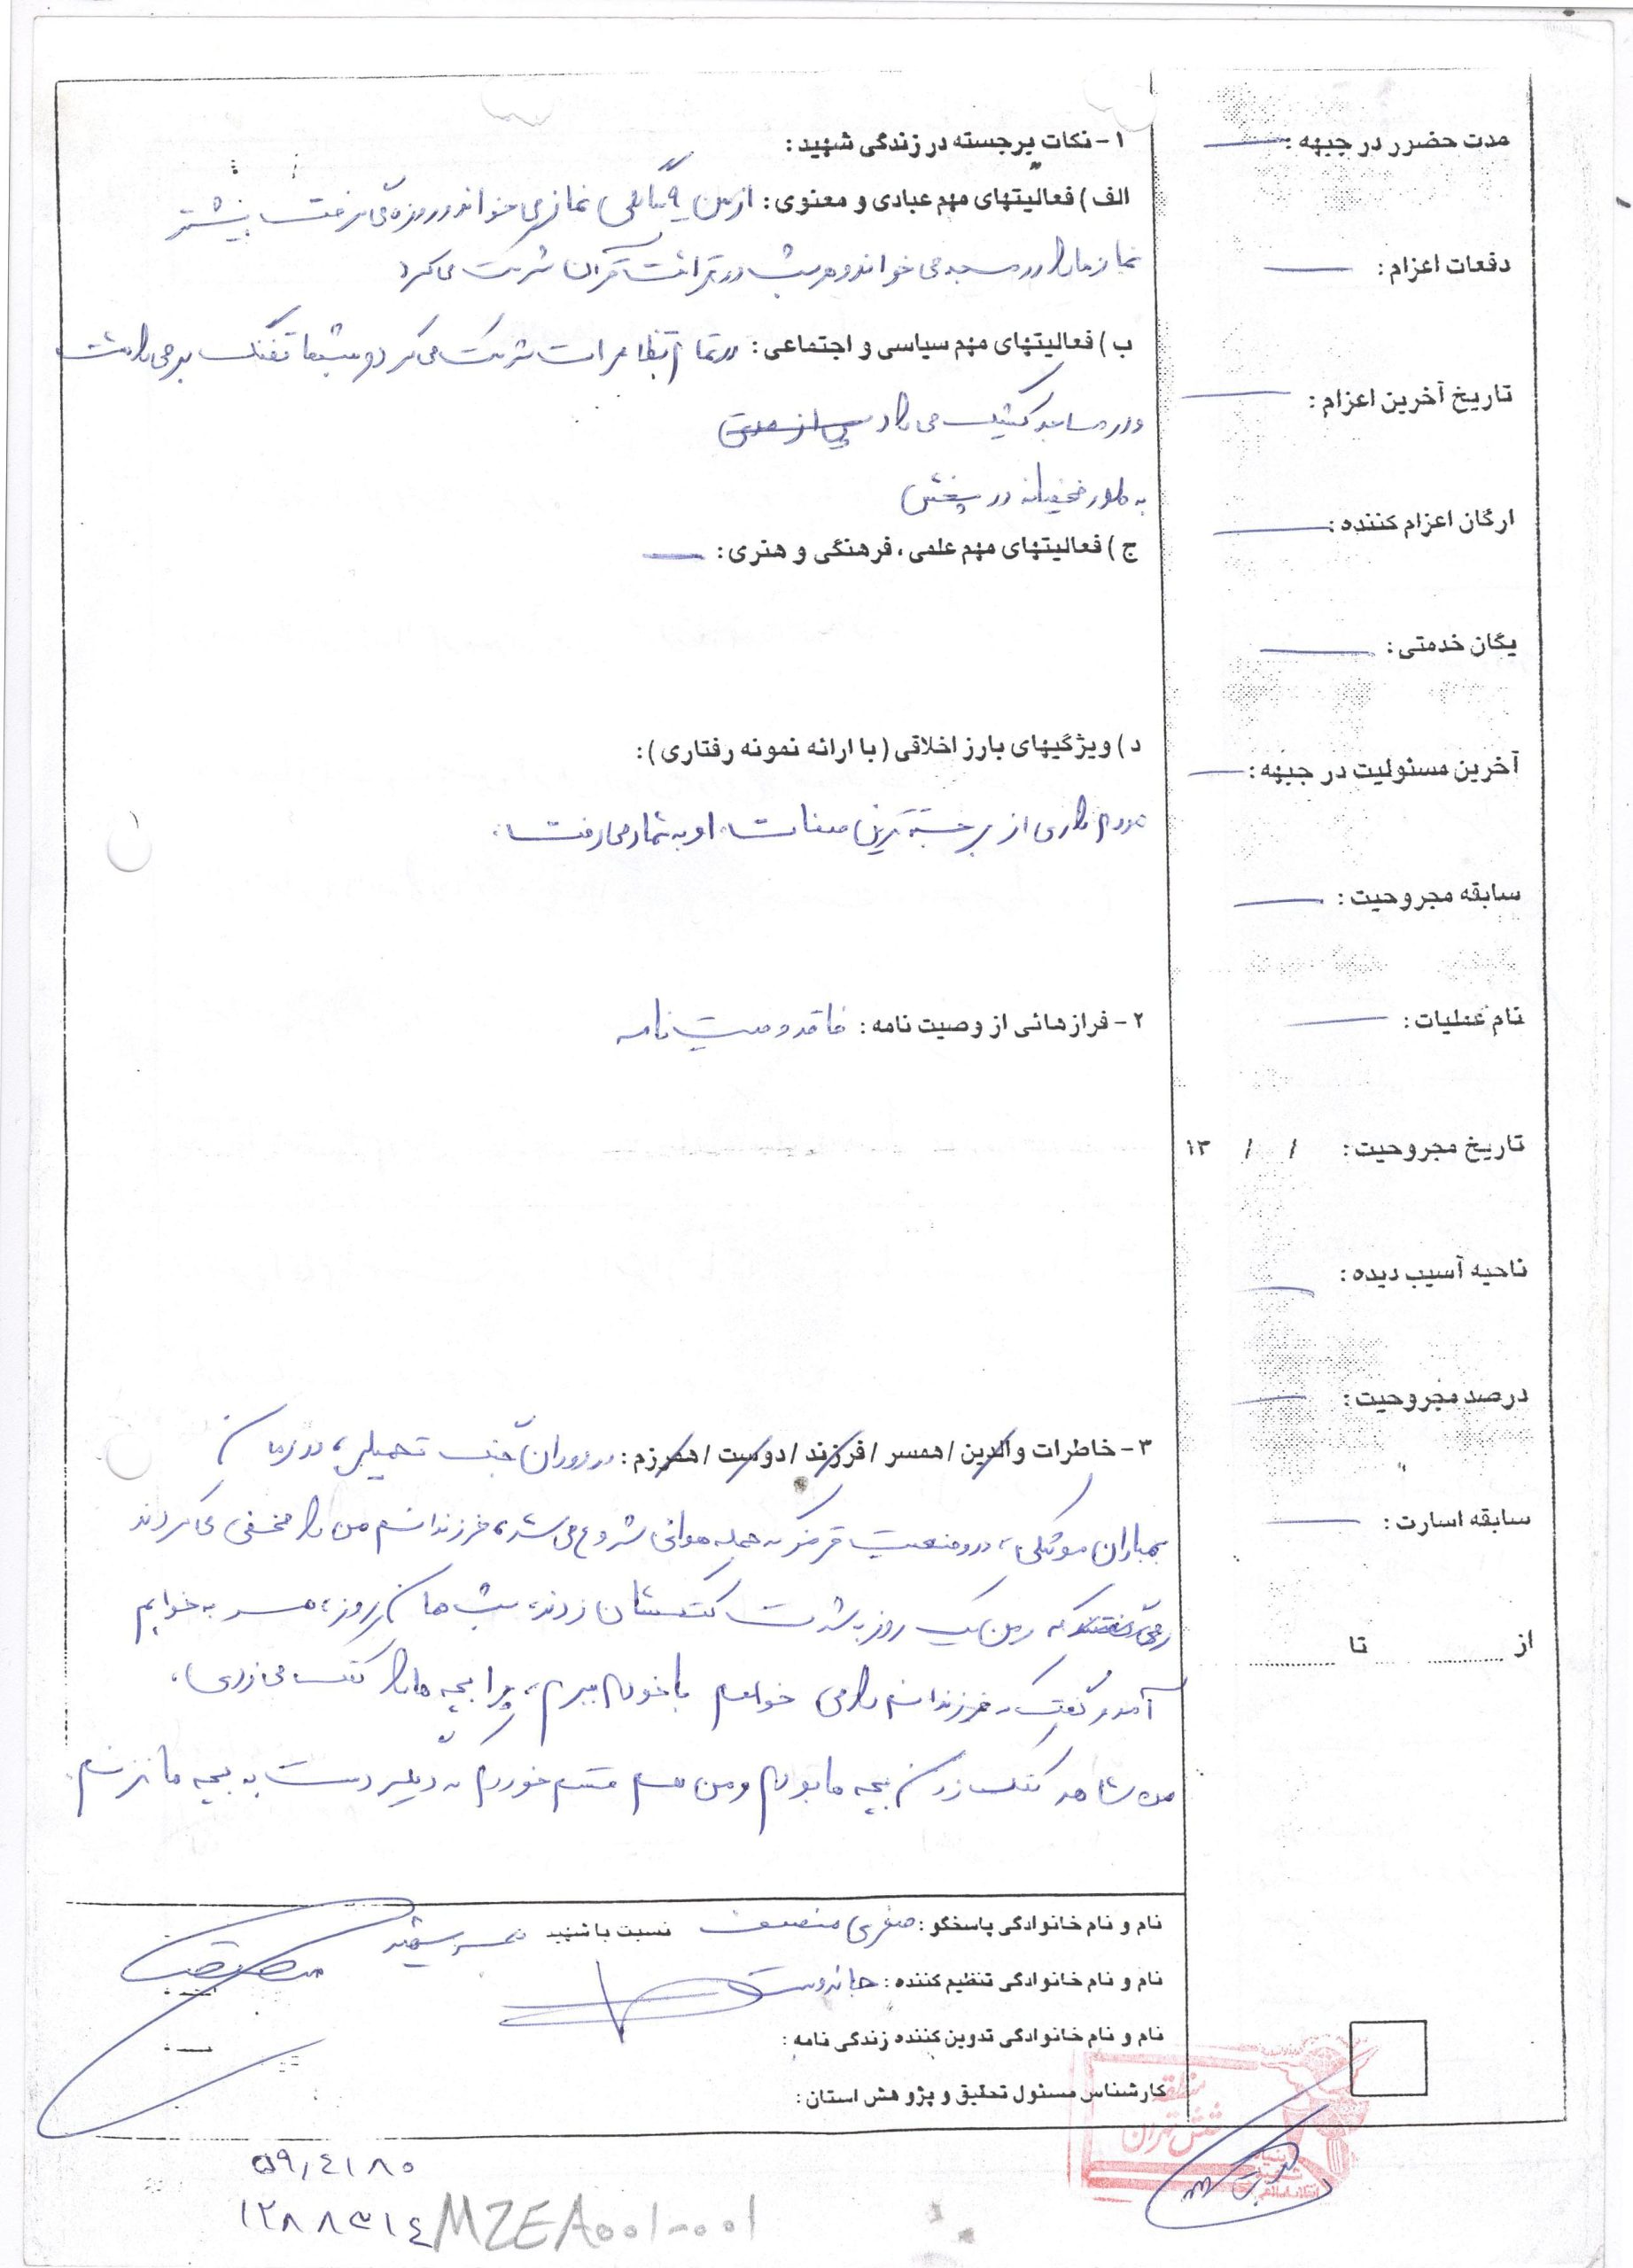 مدت حضرر در جبهه :
دفعات اعزام :
تاریخ آخرین اعزام :
ارگان اعزام کننده :
یگان خدمتی :
آخرین مسئولیت در جبهه :
سابقه مجروحیت :
نام عملیات :
تاریخ مجروحیت : / / ۱۳
ناحیه آسیب دیده :
درصد مجروحیت :
سابقه اسارت :
از ............ تا ............
۱- نکات برجسته در زندگی شهید :
الف ) فعالیتهای مهم عبادی و معنوی : از سن ۹ سالگی نماز می خواند و روزه می گرفت بیشتر
نمازها را در مسجد می خواند و هر شب در قرائت قرآن شرکت می کرد
ب ) فعالیتهای مهم سیاسی و اجتماعی : در تمام تظاهرات شرکت می کرد و شبها تفنگ بر می داشت
و در مساجد کشیک می داد پس از مدتی
به طور مخفیانه در پخش
ج ) فعالیتهای مهم علمی ، فرهنگی و هنری :
د ) ویژگیهای بارز اخلاقی ( با ارائه نمونه رفتاری ) :
مردم داری از برجسته ترین صفات او به شمار می رفت .
۲- فرازهائی از وصیت نامه : فاقد وصیت نامه
۳- خاطرات والدین / همسر / فرزند / دوست / همرزم : در دوران جنگ تحمیلی ، در زمان
بمباران موشکی ، در وضعیت قرمز که حمله هوائی شروع می شد ، فرزندانم من را مخفی می کردند
که من یک روز به شدت کتکشان زدند ، شب همان روز ، همسر به خوابم
آمد و گفت که فرزندانم را می خواهم با خودم ببرم ، چرا بچه ها را کتک می زدی ،
من شاهد کتک زدن بچه ها بودم و من هم قسم خوردم که دیگر دست به بچه ها نزنم .
نام و نام خانوادگی پاسخگو : صغری منصف نسبت با شهید همسر شهید
نام و نام خانوادگی تنظیم کننده : جاندوست
نام و نام خانوادگی تدوین کننده زندگی نامه :
کارشناس مسئول تحقیق و پژوهش استان :
منطقه
شش تهران
۵۹,۴۱۸۰
۱۲۸۸۳۱۴ MZEA001-001